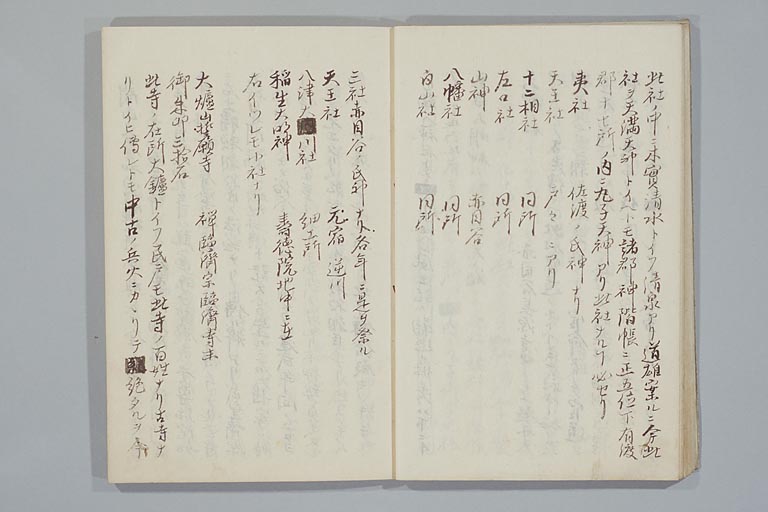 此社ノ中ニ木實清水トイフ清泉アリ道雄案ルニ今此
社ヲ天満天神トイヘトモ諸郡神階帳ニ正五位下有渡
郡十七所ノ内ニ九子天神アリ此社ナルヿ必セリ
夷社 佐渡ノ氏神ナリ
天王社 戸セニアリ
十二相社 同所
左口社 同所
山神 赤目谷
八幡社 同所
白山社 同所
三社赤目谷ノ氏神ナリ各年ニ是ヲ祭ル
天王社 元宿 逆川
八津大 川社 細工所
稲生大明神 壽徳院地中ニ在
右イツレモ小社ナリ
大爐山誓願寺 禅臨濟宗臨濟寺末
御朱印三拾石
此寺ノ在所大鑪トイフ民戸モ此寺ノ百姓ナリ古寺ナ
リトイヒ傳レトモ中古ノ兵火ニカヽリテ 絶タルヲ